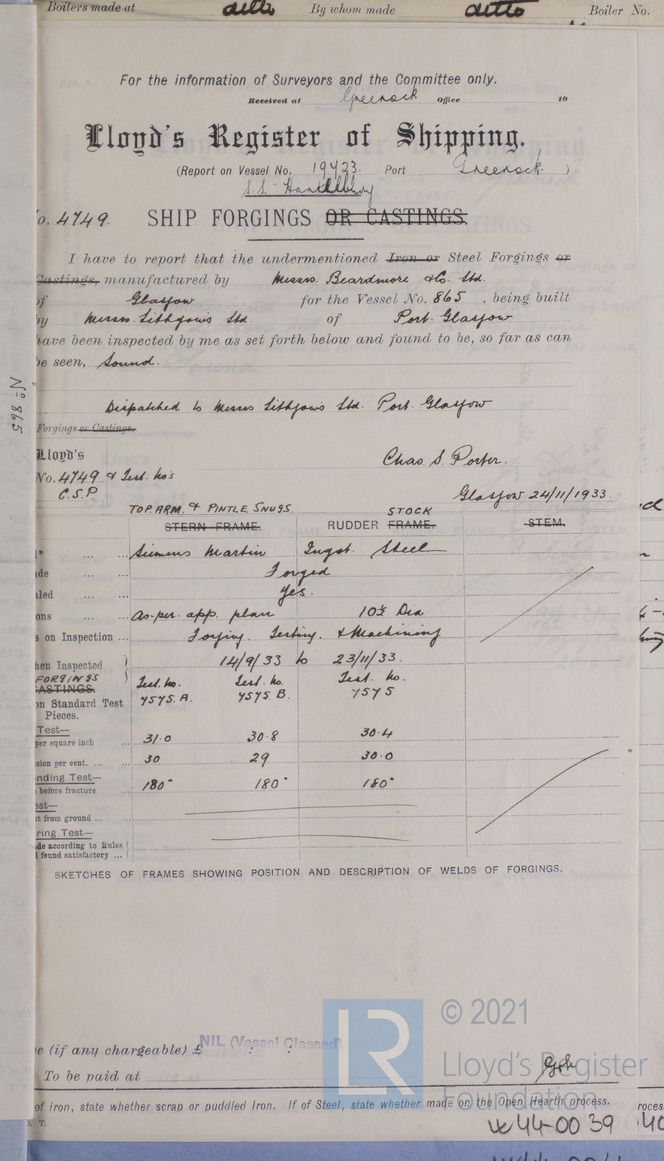 Boilers made at ditto By whom made ditto Boiler No.
For the information of Surveyors and the Committee only.
Received at Greenock Office 19
Lloyd's Register of Shipping.
(Report on Vessel No. 19423. Port Greenock. )
S.S.
o. 4749. SHIP FORGINGS OR CASTINGS.
I have to report that the undermentioned Iron or Steel Forgings or
Castings, manufactured by Messrs. Beardmore & Co. Ltd.
of Glasgow for the Vessel No. 865, being built
by Messrs. Lithgows Ltd. of Port Glasgow
have been inspected by me as set forth below and found to be, so far as can
be seen, Sound.
No 865
Dispatched to Messrs Lithgows Ltd. Port. Glasgow
Forgings or Castings.
Lloyd's
No. 4749 & Test. No's
C.S.P.
Chas. S. Porter.
Glasgow 24/11/1933.
TOP ARM. & PINTLE SNUGS. STOCK
STERN FRAME. RUDDER FRAME. STEM.
... ... Siemens Martin Ingot Steel
de ... ... Forged
led ... ... Yes.
ons ... As. per. app. plan 10⅜ Dia
s on Inspection ... Forging, Testing, & Machining
hen Inspected 14/9/33 to 23/11/33.
FORGINGS
CASTINGS. Test. No. Test. No. Test. No.
on Standard Test 7575. A. 7575 B. 7575
Pieces.
Test—
per square inch ... 31.0 30.8 30.4
sion per cent. ... ... 30 29 30.0
nding Test—
before fracture ... 180° 180° 180°
est—
t from ground ...
ring Test—
de according to Rules
found satisfactory ...
SKETCHES OF FRAMES SHOWING POSITION AND DESCRIPTION OF WELDS OF FORGINGS.
e (if any chargeable) £ NIL (Vessel Classed)
To be paid at
© 2021
LR
Lloyd's Register
Foundation
of Iron, state whether scrap or puddled Iron. If of Steel, state whether made on the Open Hearth process.
W44-0039